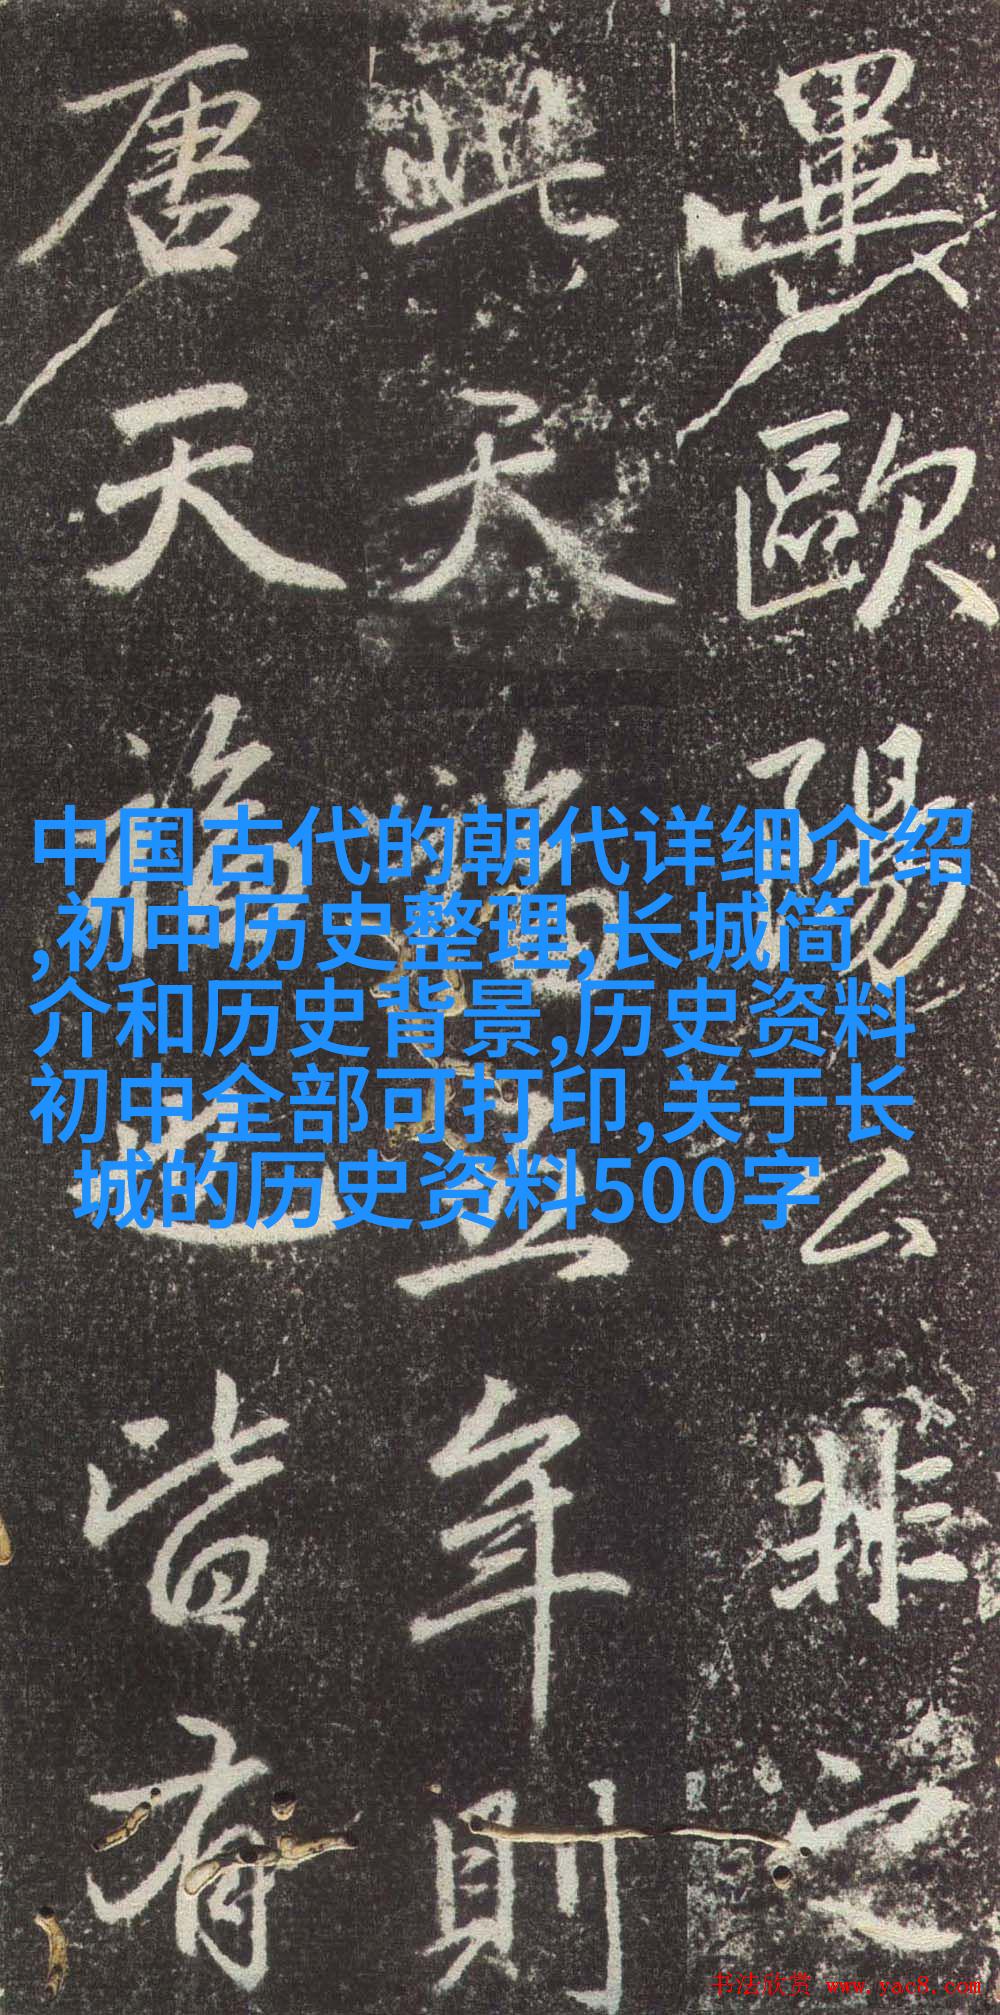 畢歐陽公非之
此天五年則
唐天皆有
中国古代的朝代详细介绍
,初中历史整理,长城简
介和历史背景,历史资料
初中全部可打印,关于长
城的历史资料500字
书法欣赏 www.yac8.com